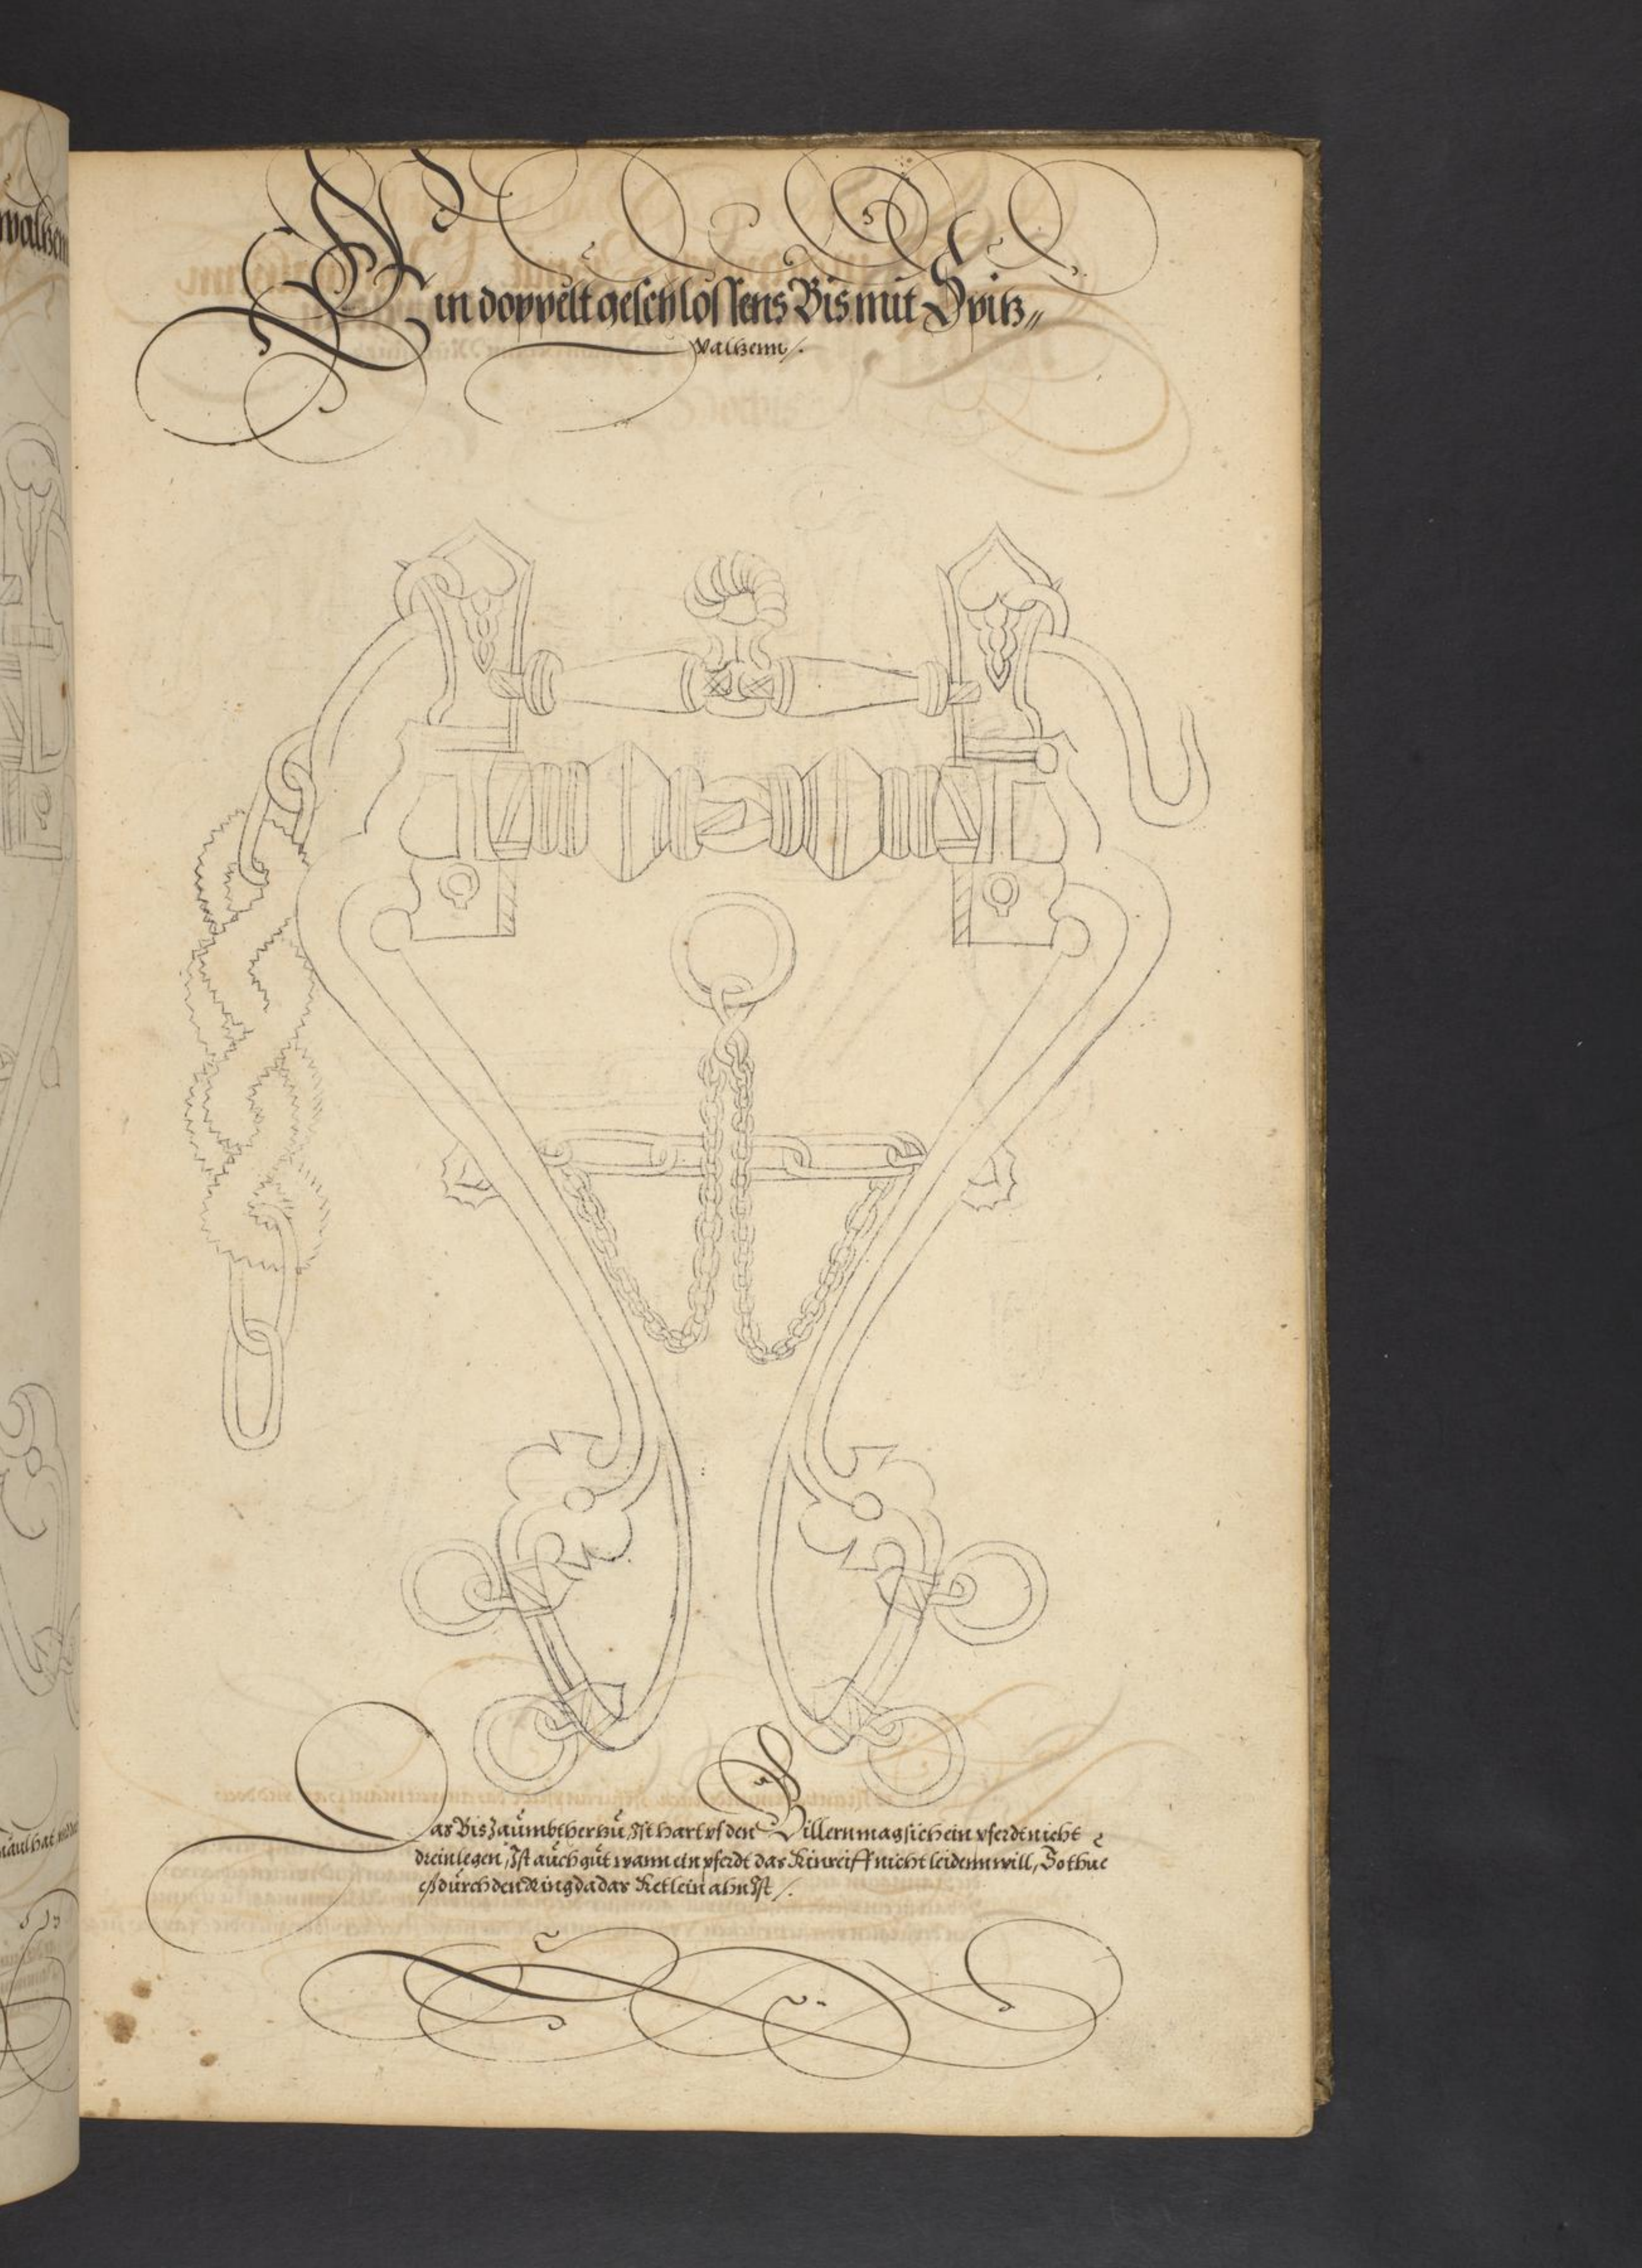 Ein doppelt geschlossens Bis mit Spitz„
walzenn/.
Das Bis Zaumbt herzu, Ist hart uf den Billern mag sich ein pferdt nicht
drein legen, Ist auch gut wann ein pferdt das Kinreiff nicht leidenn will, So thue
eß durch den Ring da das Ketlein ahn Ist /.
walzen
maul hat